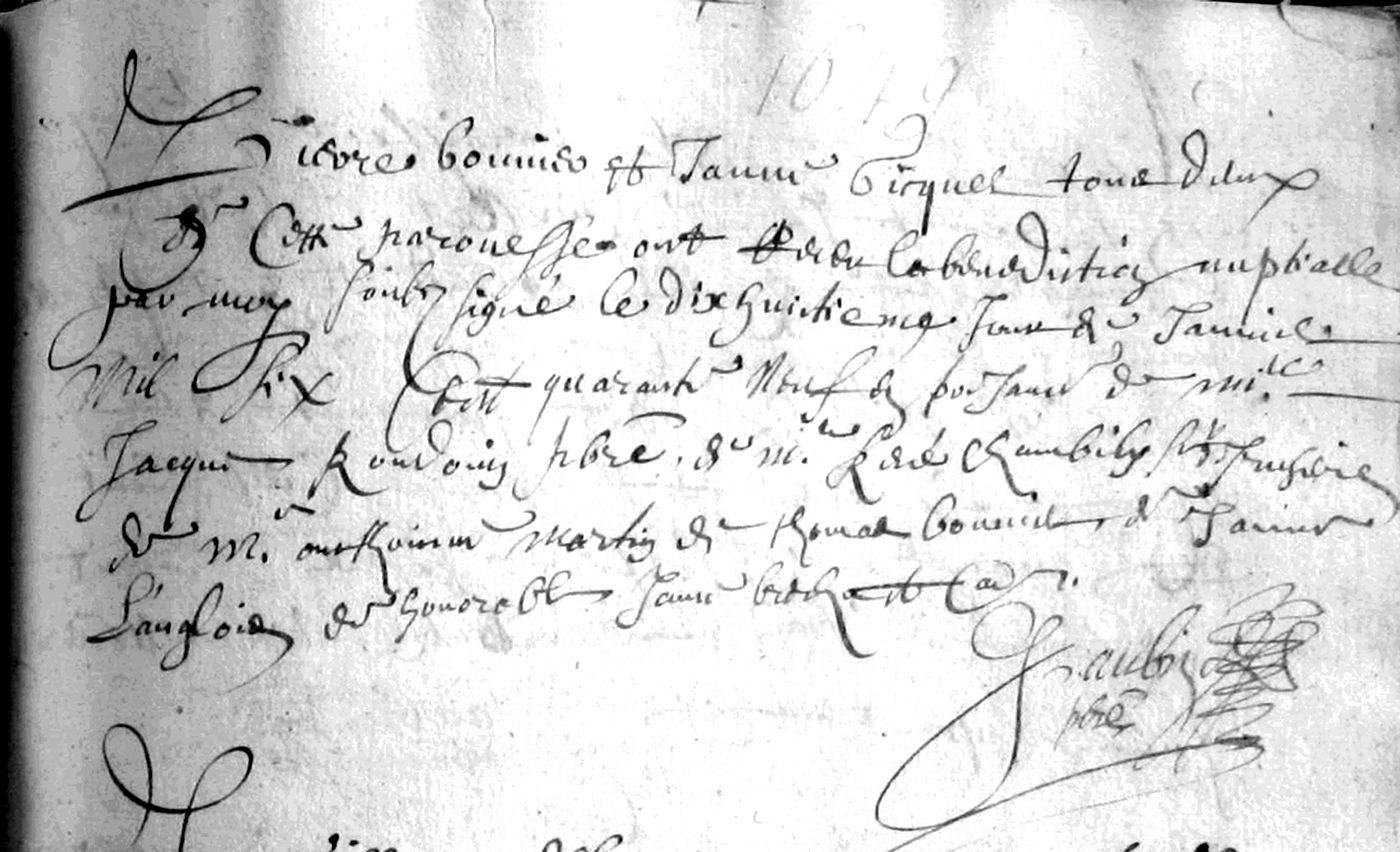 1649
Pierre bonnier et Janne Gicquel tous deux
de Cette parouesse ont Receu la benediction nuptialle
par moy soubz signé le dixhuictieme Jour de Janvier
Mil Six Cent quarante Neuf en pnce de m.re
Jacques Roudouin pbre. de m.re René
de m.re anthoinne martin de thomas bonnier de Janne
Langlois de honorable Janne
aubin
pbre